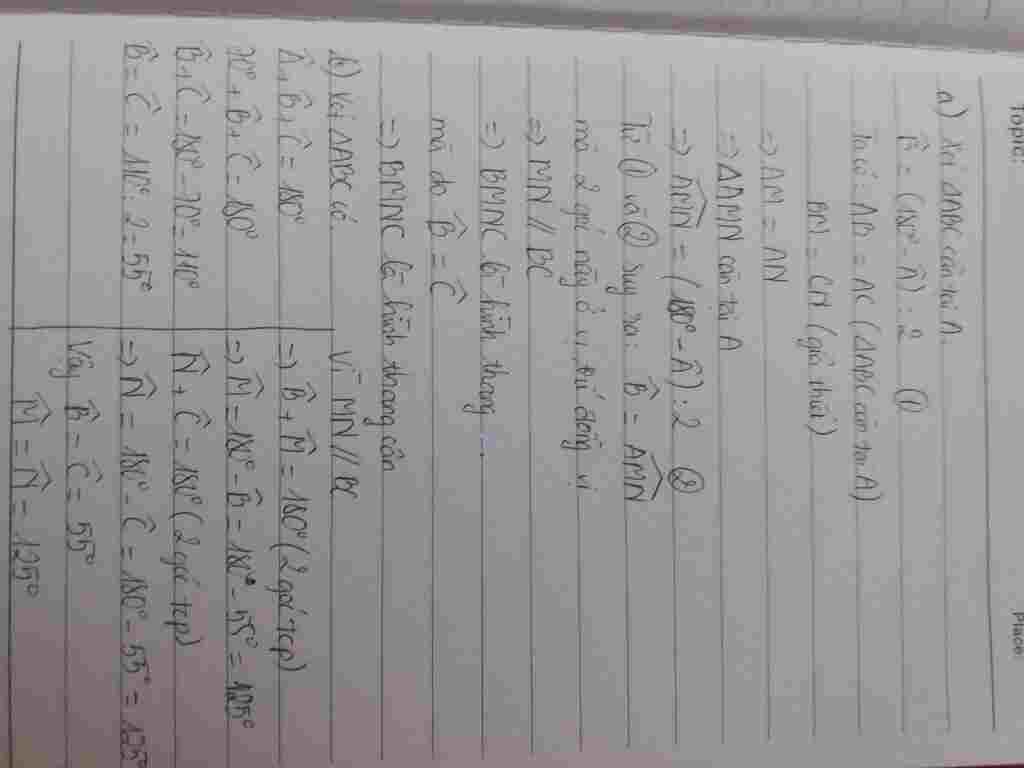 Topic:
Place:
a) Xét ΔABC cân tại A.
B̂ = (180° - Â) : 2 ①
Ta có: AB = AC (ΔABC cân tại A)
BM = CN (giả thiết)
=> AM = AN
=> ΔAMN cân tại A
=> AMN̂ = (180° - Â) : 2 ②
Từ ① và ② suy ra: B̂ = AMN̂
mà 2 góc này ở vị trí đồng vị
=> MN // BC
=> BMNC là hình thang
mà do B̂ = Ĉ
=> BMNC là hình thang cân
b) Xét ΔABC có:
Â + B̂ + Ĉ = 180°
70° + B̂ + Ĉ = 180°
B̂ + Ĉ = 180° - 70° = 110°
B̂ = Ĉ = 110° : 2 = 55°
Vì MN // BC
=> B̂ + M̂ = 180° (2 góc tcp)
=> M̂ = 180° - B̂ = 180° - 55° = 125°
N̂ + Ĉ = 180° (2 góc tcp)
=> N̂ = 180° - Ĉ = 180° - 55° = 125°
Vậy B̂ = Ĉ = 55°
M̂ = N̂ = 125°